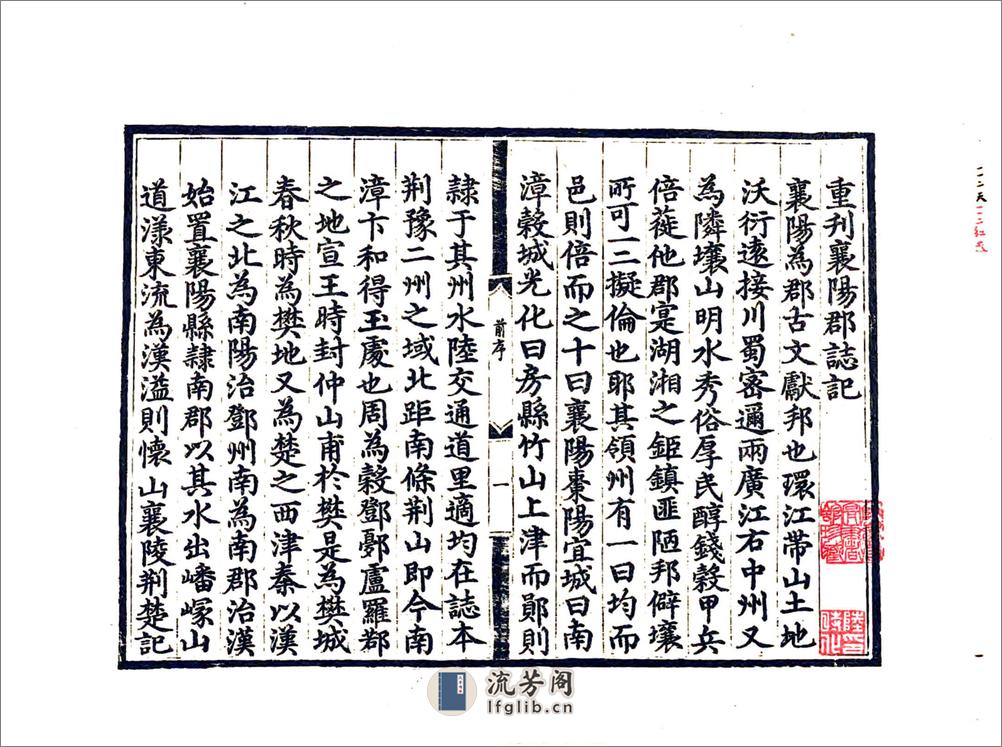 重刊襄陽郡誌記
襄陽為郡古文獻邦也環江帶山土地
沃衍遠接川蜀密邇兩廣江右中州又
為隣壤山明水秀俗厚民醇錢穀甲兵
倍蓰他郡寔湖湘之鉅鎮匪陋邦僻壤
所可一二擬倫也耶其領州有一曰均而
邑則倍而之十曰襄陽棗陽宜城曰南
漳榖城光化曰房縣竹山上津而鄖則
前序
一
隸于其州水陸交通道里適均在誌本
荆豫二州之域北距南條荆山即今南
漳卞和得玉處也周為榖鄧鄾盧羅鄀
之地宣王時封仲山甫於樊是為樊城
春秋時為樊地又為楚之西津秦以漢
江之北為南陽治鄧州南為南郡治漢
始置襄陽縣隸南郡以其水出嶓冢山
道漾東流為漢溢則懷山襄陵荆楚記
流芳阁
lfglib.cn